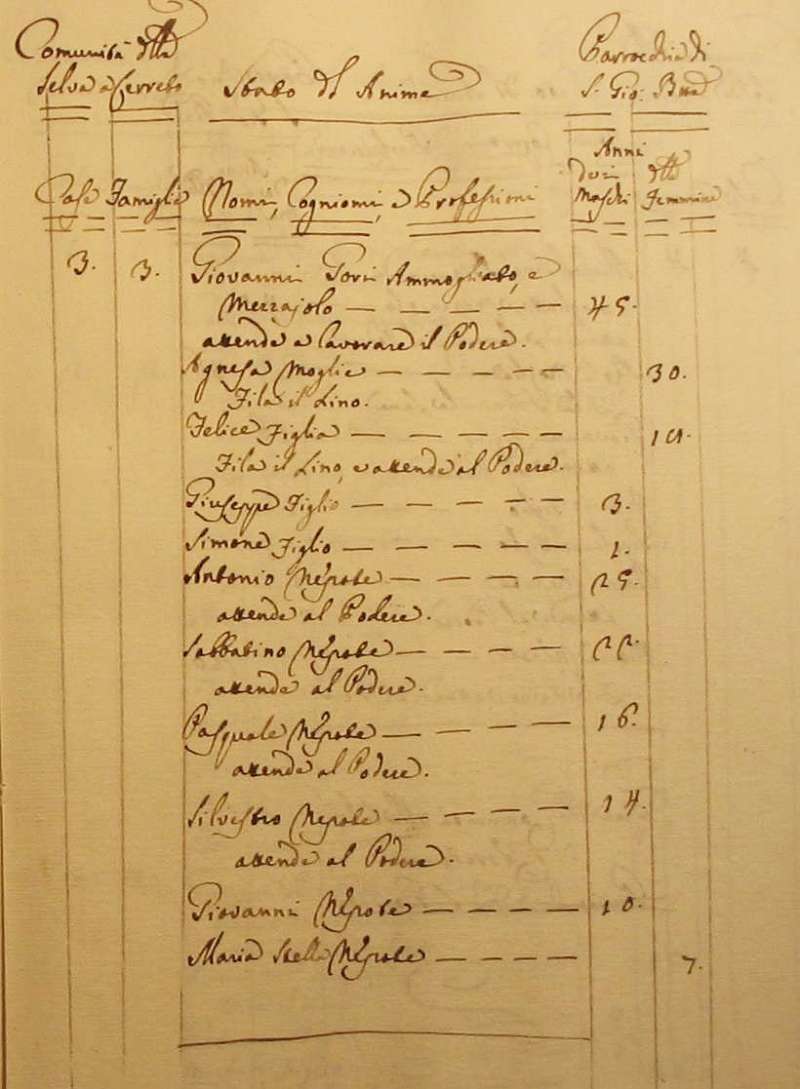 Comunità della
Selva e Cerreto Stato di Anime Parrochia di
S. Gio: Bta
Anni
Case Famiglie Nomi, Cogniomi, e Professioni dei Maschi dtt Femmine
3. 3. Giovanni Gori Ammogliato, e
Mezzajolo — — — — 45.
attende a Lavorare il Podere.
Agnesa Moglie — — — — 30.
Fila il Lino.
Felice Figlia — — — — —
Fila il Lino, e attende al Podere.
Giuseppe Figlio — — — — — 3.
Simone Figlio — — — — — 1.
Antonio Nepote — — — — 25.
attende al Podere.
Sabbatino Nepote — — — — 22.
attende al Podere.
Pasquale Nepote — — — — 16.
attende al Podere.
Silvestro Nepote — — — — 14.
attende al Podere.
Giovanni Nepote — — — — 10.
Maria Stella Nepote — — — — 7.